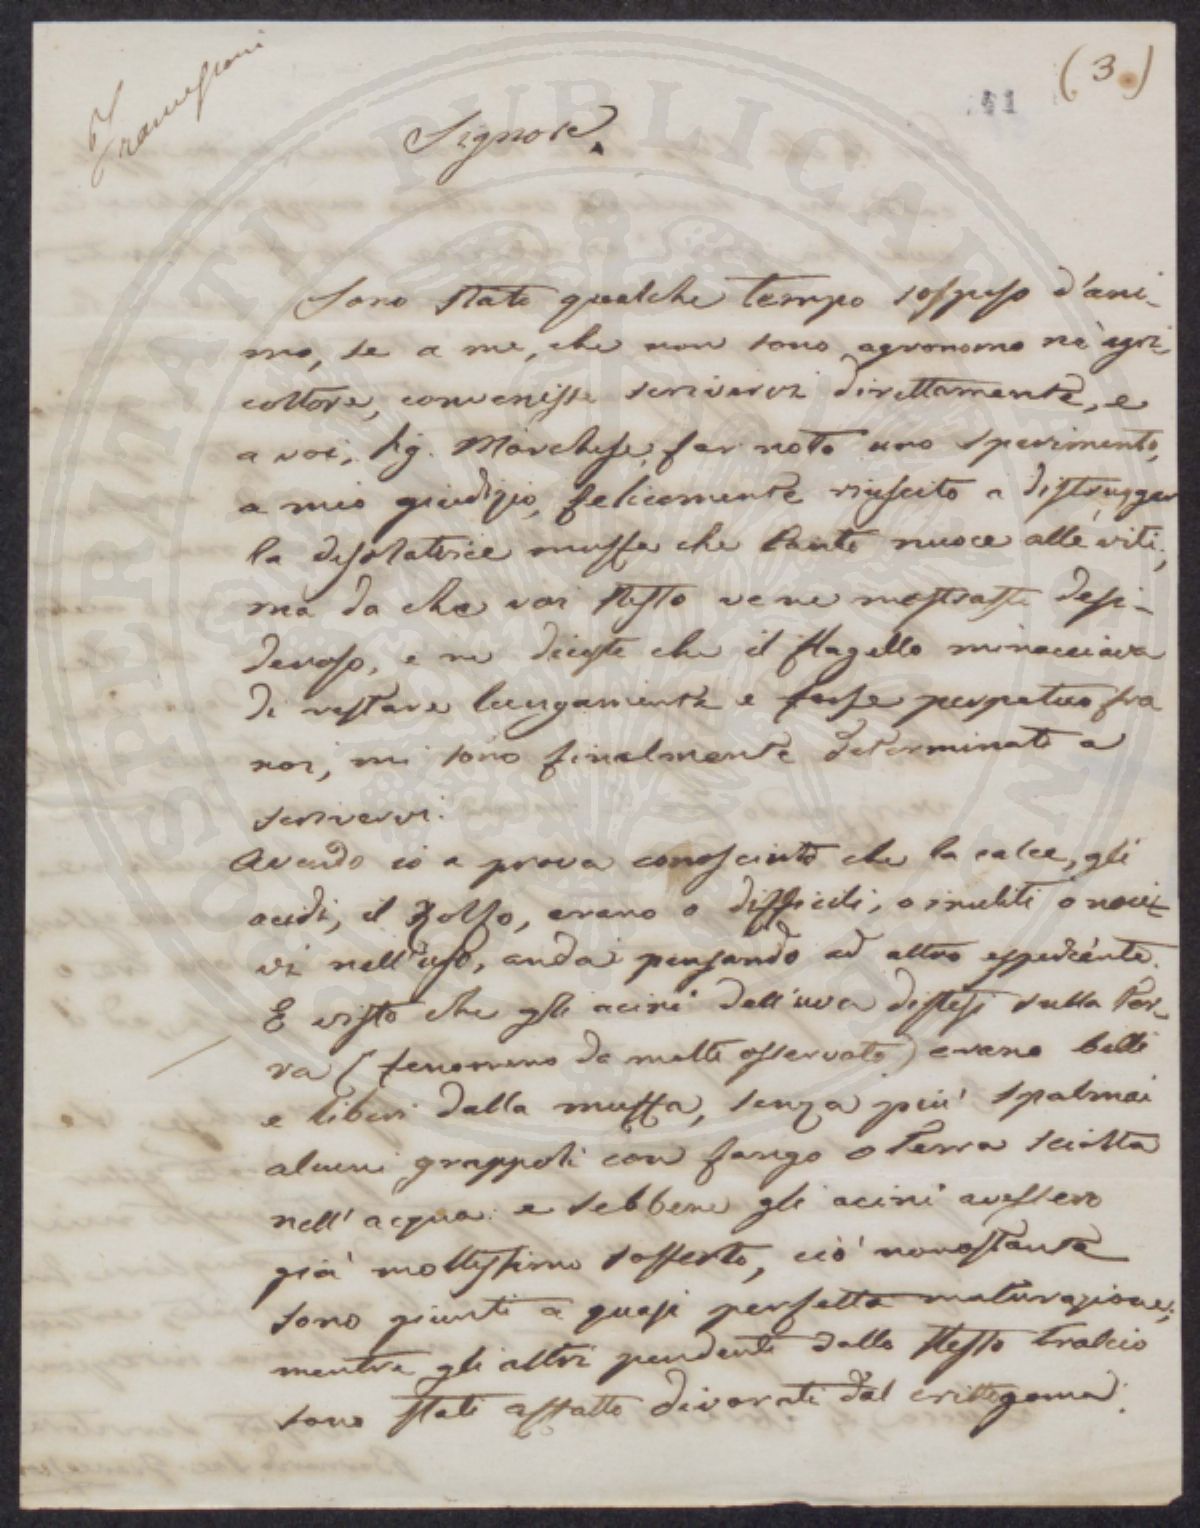 Franceschini
(3.)
41
Signore.
Sono stato qualche tempo sospeso d'ani-
mo, se a me, che non sono agronomo nè agri-
coltore, convenisse scrivervi direttamente, e
a voi, Sig. Marchese, far noto uno sperimento,
a mio giudizio, felicemente riuscito a distrugger
la desolatrice muffa che tanto nuoce alle viti;
ma da che voi stesso ve ne mostraste desi-
deroso, e ne diceste che il flagello minacciava
di restare lungamente e forse perpetuo fra
noi, mi sono finalmente determinato a
scrivervi.
Avendo io a prova conosciuto che la calce, gli
acidi, il Zolfo, erano o difficili, o inutili o noci-
vi nell'uso, andai pensando ad altro espediente.
E visto che gli acini dell'uva distesi sulla Ter-
ra (fenomeno da molti osservato) erano belli
e liberi dalla muffa, senza piu' spalmai
alcuni grappoli con fango o Terra sciolta
nell'acqua: e sebbene gli acini avessero
già moltissimo sofferto, ciò nonostante
sono giunti a quasi perfetta maturazione;
mentre gli altri pendenti dallo stesso tralcio
sono stati affatto divorati dal crittogama.
SPERITATI PUBLICAE